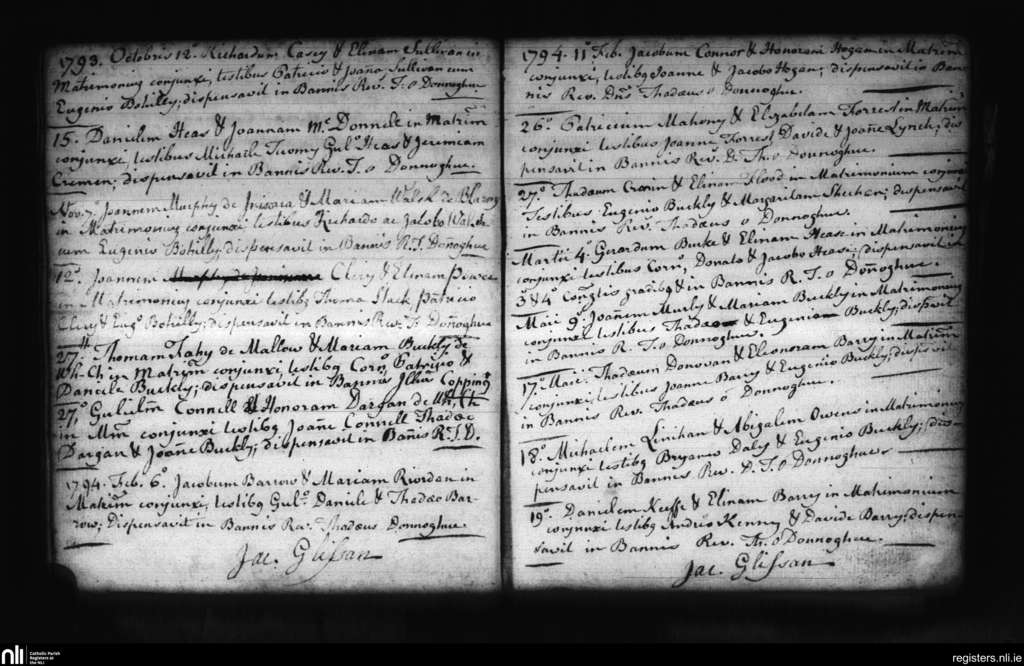 1793. Octobris 12º Richardum Casey & Elinam Sullivan in
Matrimonium conjunxi, testibus Patricio & Joaña Sullivan cum
Eugenio Bohilly; dispensavit in Bannis Rev. T. o Donnoghue
15. Danielem Heas & Joannam Mc. Donnele in Matrim̃
conjunxi, testibus Michaele Twomy Gulº Heas & Jeremiam
Cremen; dispensavit in Bannis Rev. T. o Donnoghue.
Nov. 7º Joannem Murphy de & Mariam Walsh de Blarny
in Matrimonium conjunxi testibus Richardo ac Jacobo Walsh
cum Eugenio Bohilly; dispensavit in Bannis R. T. Donoghue
12º. Joannem Clery & Elinam Pearce
in Matrimonium conjunxi testibq Thoma Slack Patricio
Clery & Eugº Bohilly; dispensavit in Bannis Rev. T. Doñoghue
27. Thomam Fahy de Mallow & Mariam Buckly de
Wh. Ch in Matrim̃ conjunxi testibq Cornº Patricio &
Daniele Buckly; dispensavit in Bannis Illm̃ Copping̃
27º Gulielm̃ Connell & Honoram Dargan de Wh. Ch
in Mm̃ conjunxi testibq Joañe Connell Thadæo
Dargan & Joañe Buckly; dispensavit in Bañis R. T. D.
1794. Feb. 6º. Jacobum Barrow & Mariam Riordan in
Matrim̃ conjunxi, testibq Gulº. Daniele & Thadæo Bar-
row; Dispensavit in Bannis Rev. Thadæus Donnoghue.
Jac. Glissan
1794. 11º Feb. Jacobum Connor & Honoram Hogan in Matrim̃
conjunxi, testibq Joanne & Jacobo Hogan; dispensavit in Ban
nis Rev. Dñs Thadæus o Donnoghue.
26º Patricium Mahony & Elizabetam Forrest in Matrim̃
conjunxi testibus Joanne Forrest, Davide & Joañe Lynch; dis
pensavit in Bannis Rev. D. Th. o Donnoghue.
27º. Thadæum Cronin & Elinam Flood in Matrimonium conjunxi
Testibus Eugenio Buckly & Margaritam Sheehan; dispensavit
in Bannis Rev. Thadæus o Donnoghue.
Martii 4. Gerardum Burke & Elinam Hease in Matrimonium
conjunxi testibus Cornº, Donato & Jacobo Hease; dispensavit in
3 & 4º Congtis gradibq & in Bannis R. T. o Doñoghue.
Maii 9º. Joañem Murly & Mariam Buckly in Matrimonium
conjunxi testibus Thadæo & Eugenio Buckly; dispavit
in Bannis R. T. o Donnoghue.
17º. Maii. Thadæum Donovan & Eleonoram Barry in Matrim̃
conjunxi, testibus Joanne Barry & Eugenio Buckly; dispsavit
in Bannis Rev. Thadæus o Donnoghue.
18º. Michaelem Linihan & Abigalem Owens in Matrimonium
conjunxi testibq Bryano Daly & Eugenio Buckly; dis-
pensavit in Bannis Rev. D. T. o Donnoghue
19º. Danielem Keeffe & Elinam Barry in Matrimonium
conjunxi testibq Andreo Kenny & Davide Barry; dispen
savit in Bannis Rev. Th. o Donnoghue.
Jac. Glissan
nli
Catholic Parish
Registers at
the NLI
registers.nli.ie